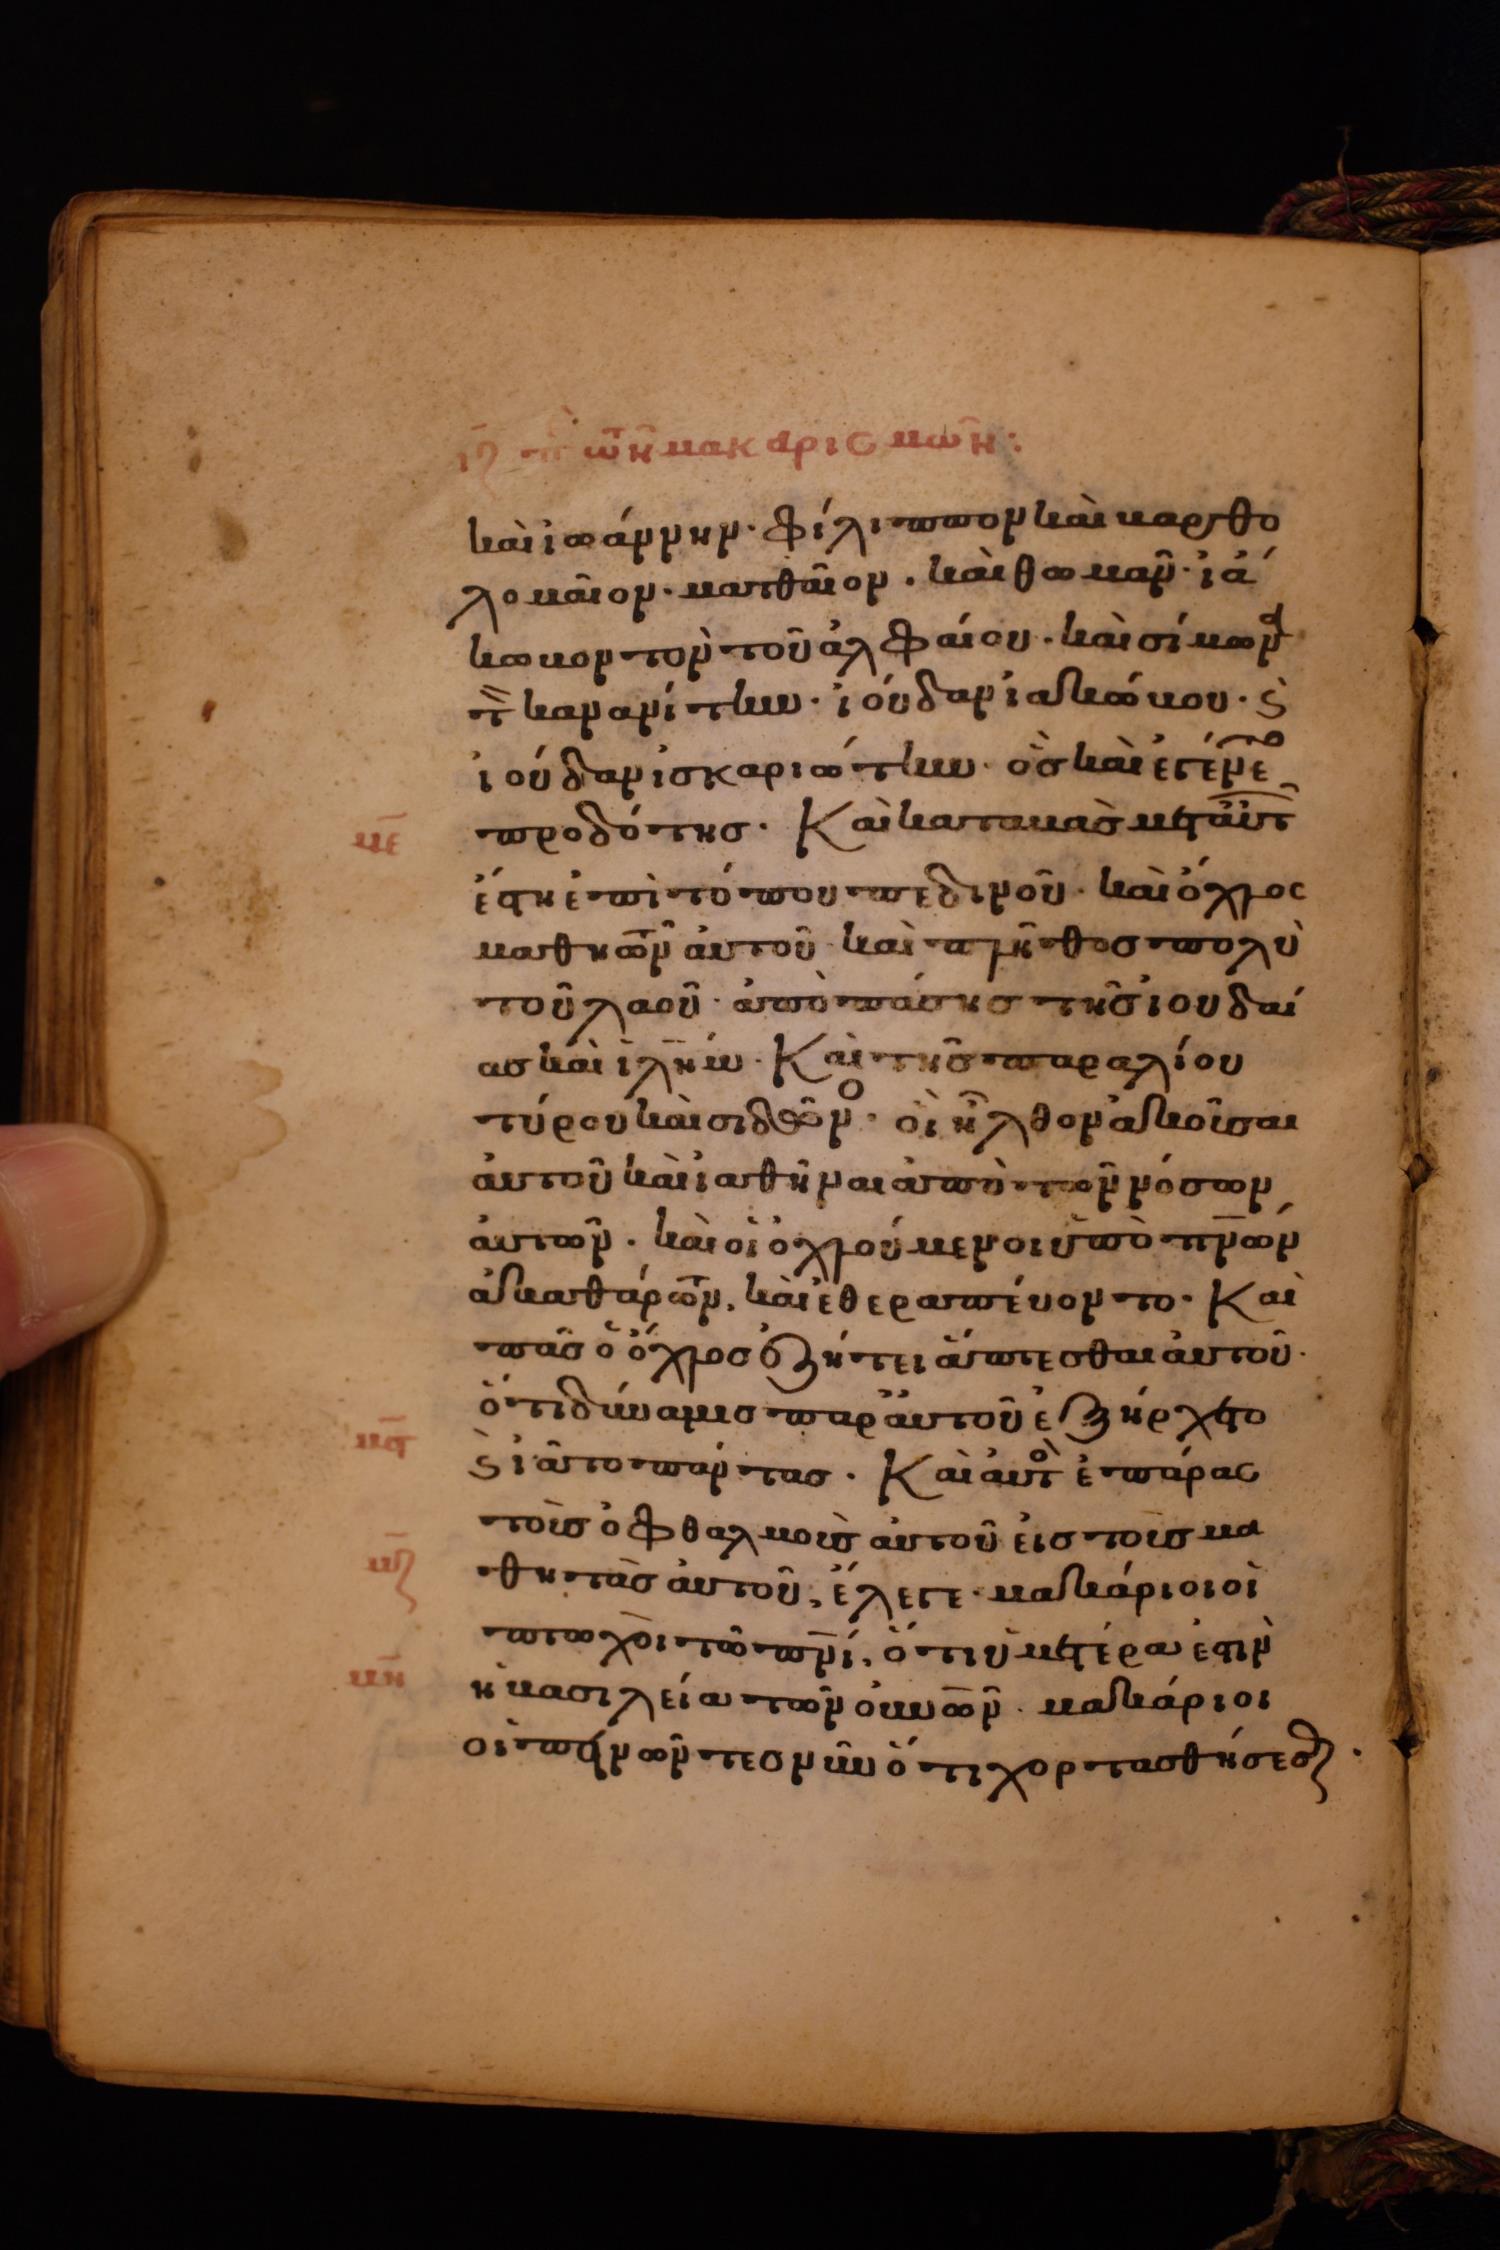 ιζ π τῶν μακαρισμῶν:
καὶ ἰωάννην· φίλιππον καὶ βαρθο
λομαῖον· ματθαῖον· καὶ θωμᾶν· ἰά
κωβον τὸν τοῦ ἀλφαίου· καὶ σίμωνα
τ̀ κανανίτην· ἰούδαν ἰακώβου· ϛ̀
ἰούδαν ἰσκαριώτην· ὃσ καὶ ἐγένετο
με̅ προδότησ· Καὶ καταβὰσ μετ' ἀυτ
ἔστη ἐπὶ τόπου πεδινοῦ· καὶ ὄχλος
μαθητῶν ἀυτοῦ καὶ πλῆθοσ πολὺ
τοῦ λαοῦ· ἀπὸ πάσησ τῆσ ἰουδαί
ασ καὶ ἰλ̅ήμ· Καὶ τῆσ παραλίου
τύρου καὶ σιδῶνο· οἳ ἦλθον ἀκοῦσαι
ἀυτοῦ καὶ ἰαθῆναι ἀπὸ τῶν νόσων
ἀυτῶν· καὶ οἱ ὀχλούμενοι ὑπὸ πν̅ων
ἀκαθάρτων, καὶ ἐθεραπέυοντο· Καὶ
πᾶσ ὁ ὄχλοσ ἐζήτει ἅπτεσθαι ἀυτοῦ·
ὅτι δύναμισ παρ' ἀυτοῦ ἐξήρχετο
μϛ̅ ϛ̀ ἰᾶτο πάντασ· Καὶ ἀυτὸ ἐπάρας
τοὺσ ὀφθαλμοὺσ ἀυτοῦ ἐισ τοὺσ μα
μζ̅ θητὰσ ἀυτοῦ, ἔλεγε· μακάριοι οἱ
πτωχὸι τῶ πν̅ί, ὅτι ὑμετέρα ἐστὶν
μη̅ ἡ βασιλεία τῶν ὀυνῶν· μακάριοι
οἱ πεινῶντεσ νῦν ὅτι χορτασθήσεσθ·